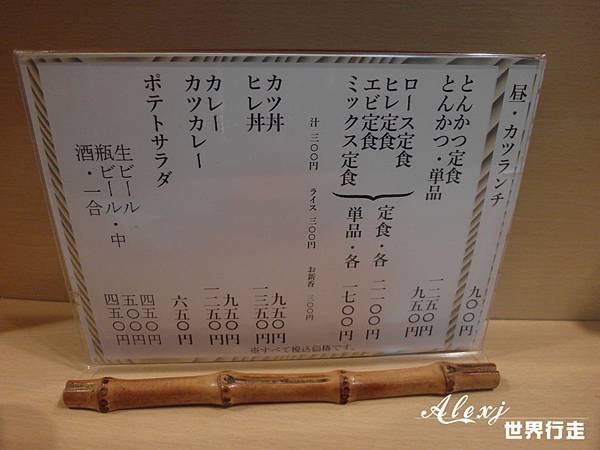 昼・カツランチ 九〇〇円
とんかつ定食 一二五〇円
とんかつ・単品 九五〇円
ロース定食
ヒレ定食
エビ定食
ミックス定食
定食・各 二一〇〇円
単品・各 一七〇〇円
汁 三〇〇円 ライス 三〇〇円 お新香 三〇〇円
カツ丼 九五〇円
ヒレ丼 一三五〇円
カレー 九五〇円
カツカレー 一二五〇円
ポテトサラダ 六五〇円
生ビール 四五〇円
瓶ビール・中 五〇〇円
酒・一合 四五〇円
※すべて税込価格です。
Alexj
世界行走